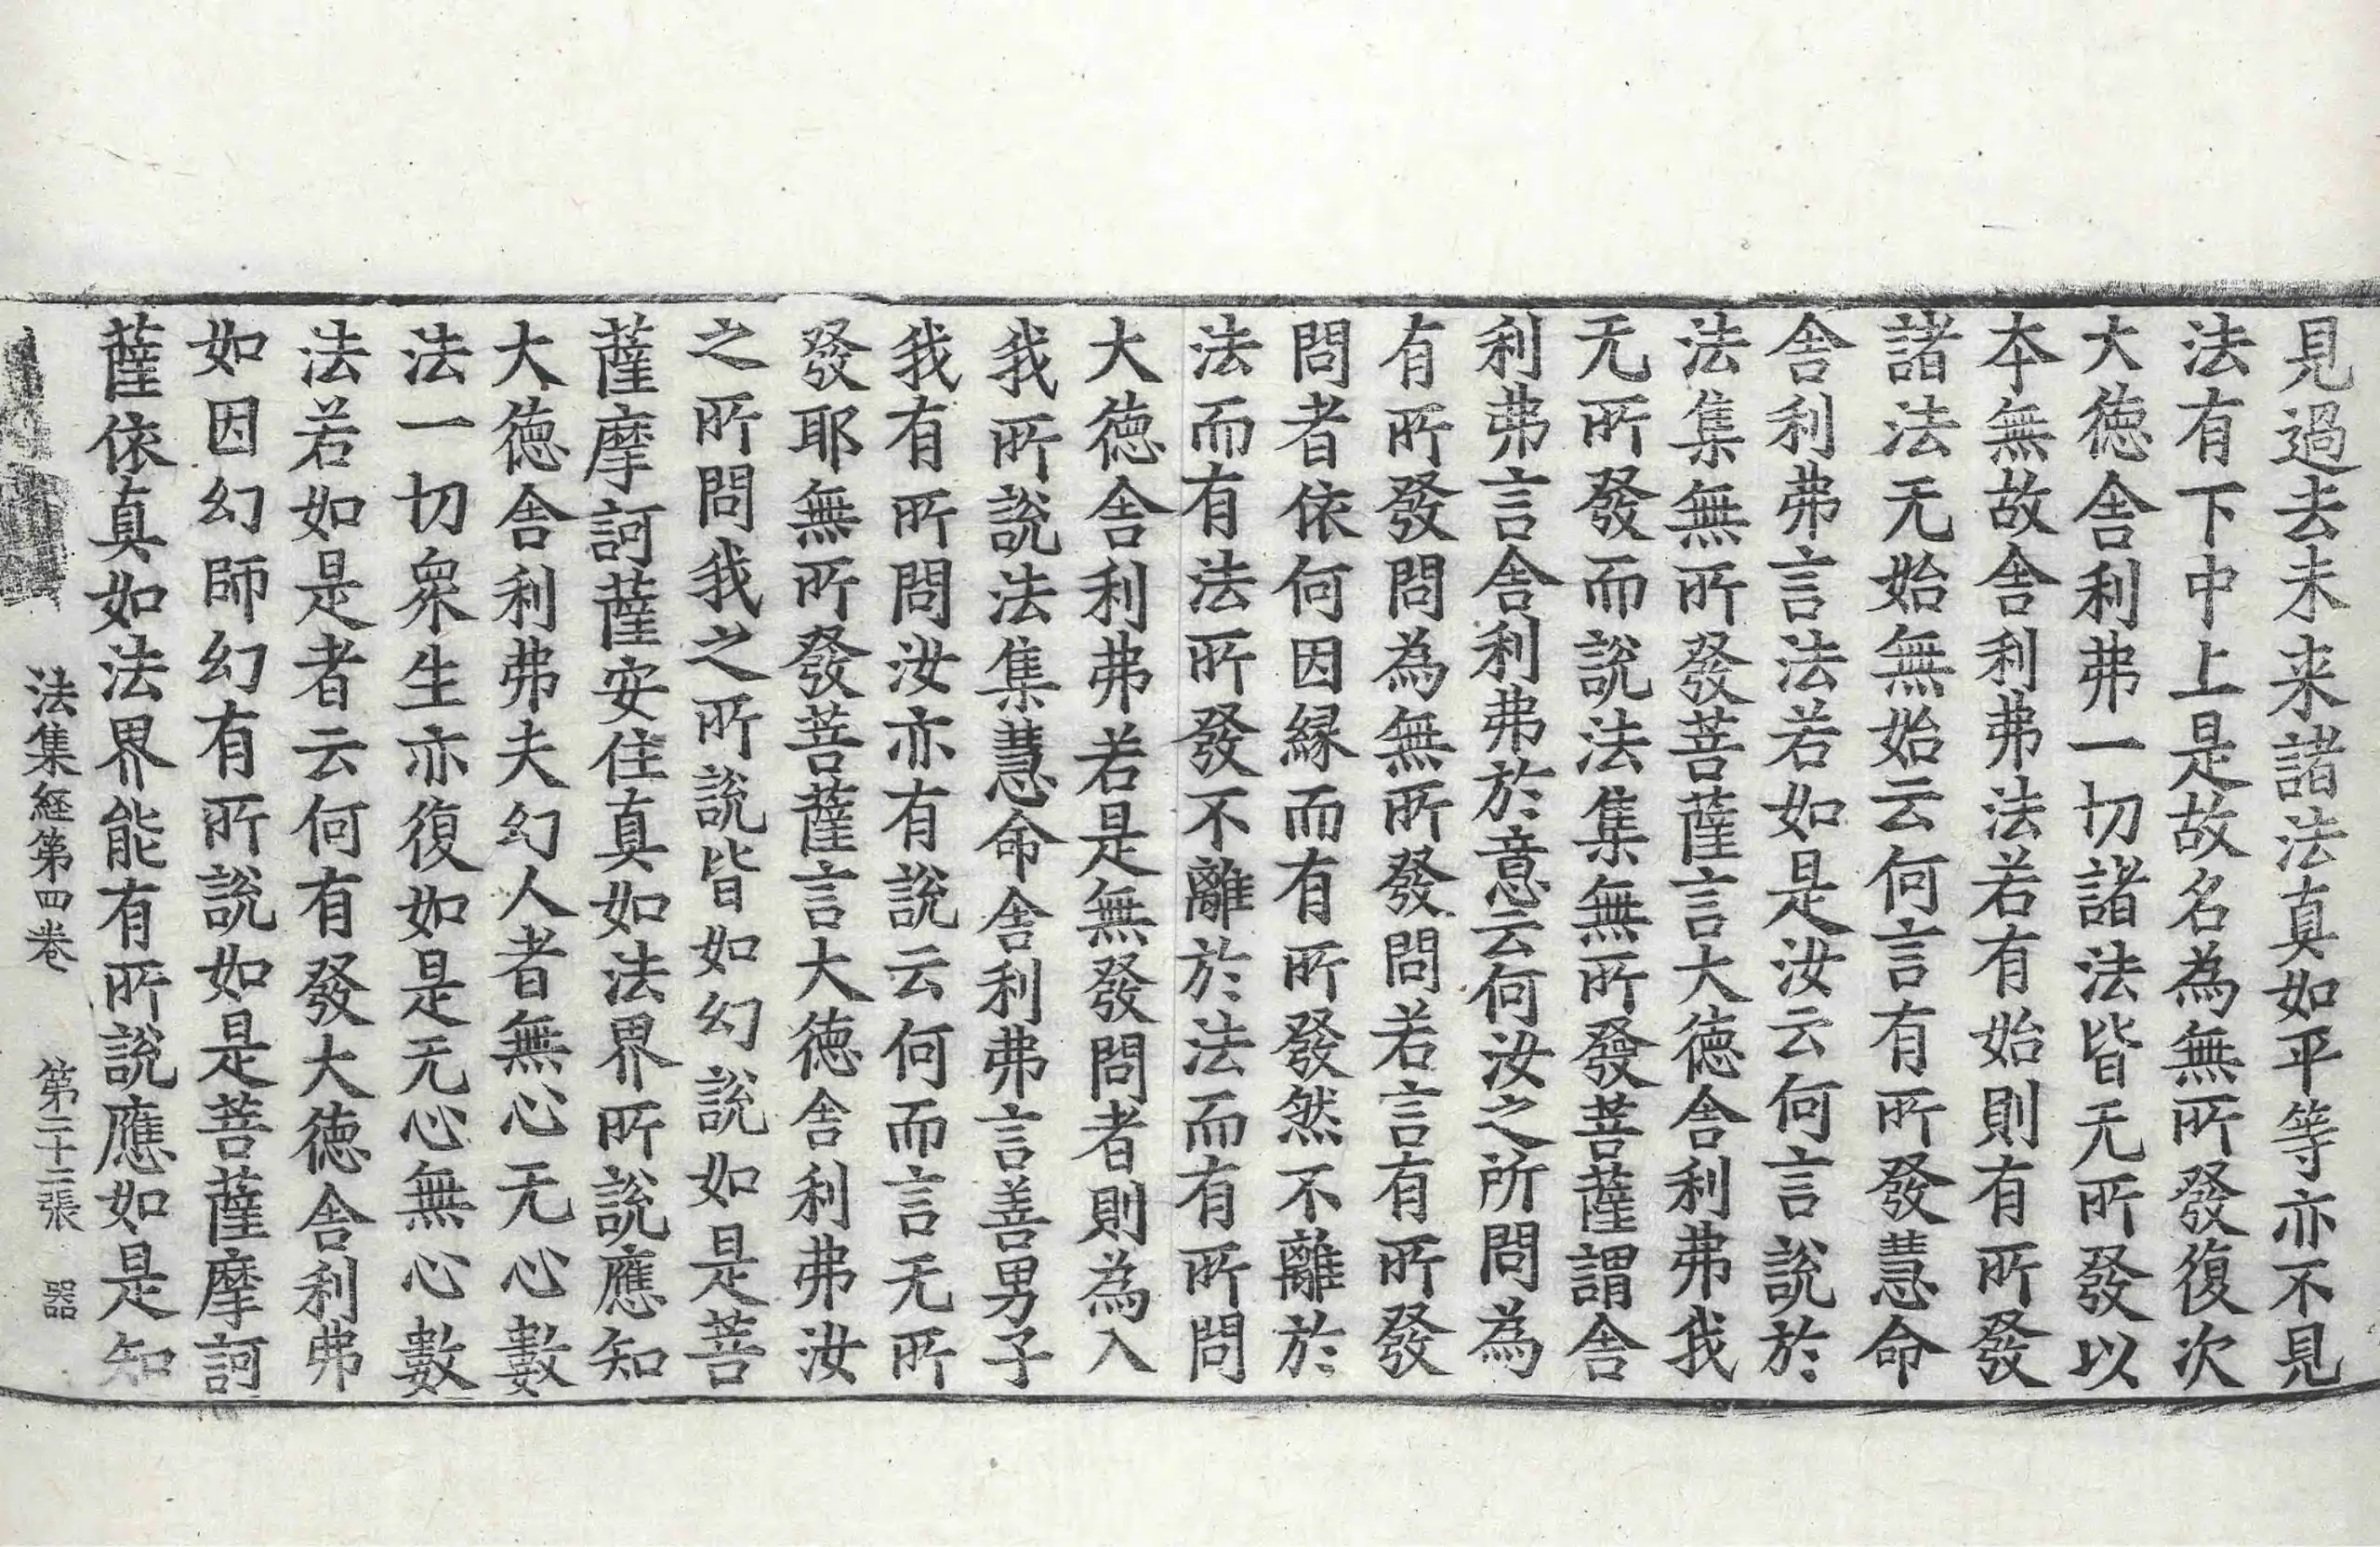 見過去未来諸法真如平等亦不見
法有下中上是故名為無所發復次
大徳舎利弗一切諸法皆无所發以
本無故舎利弗法若有始則有所發
諸法无始無始云何言有所發慧命
舎利弗言法若如是汝云何言說於
法集無所發菩薩言大徳舎利弗我
无所發而說法集無所發菩薩謂舎
利弗言舎利弗於意云何汝之所問為
有所發問為無所發問若言有所發
問者依何因緣而有所發然不離於
法而有法所發不離於法而有所問
大徳舎利弗若是無發問者則為入
我所說法集慧命舎利弗言善男子
我有所問汝亦有說云何而言无所
發耶無所發菩薩言大徳舎利弗汝
之所問我之所說皆如幻說如是菩
薩摩訶薩安住真如法界所說應知
大徳舎利弗夫幻人者無心无心數
法一切衆生亦復如是无心無心數
法若如是者云何有發大徳舎利弗
如因幻師幻有所說如是菩薩摩訶
薩依真如法界能有所說應如是知
法集経第四巻 第二十二張 器